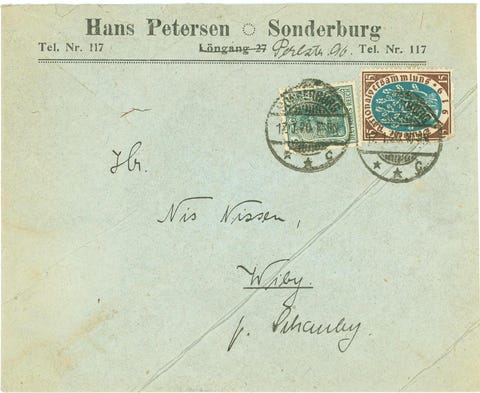 Hans Petersen Sonderburg
Tel. Nr. 117 Löngang 27 Perlstr. Tel. Nr. 117
SONDERBURG
17.1.20.
* * C
Nationalversammlung 1919
15
Hr.
Nis Nissen,
Wiby.
p. Schauby.